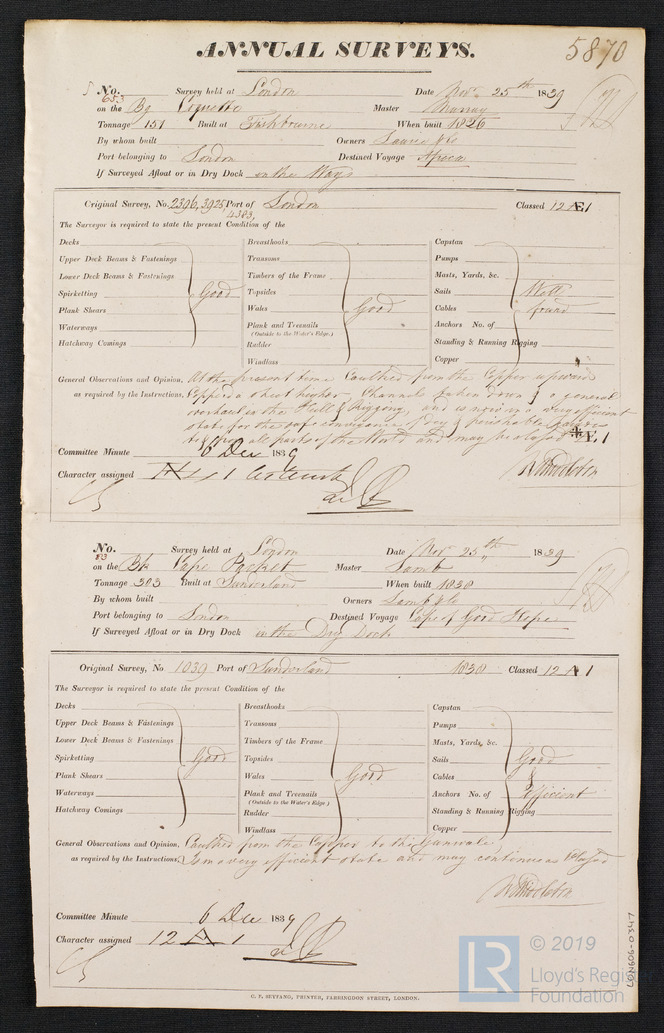 ANNUAL SURVEYS. 5870
No. 653 Survey held at London Date Novr 25th 1839
on the Bg Vequette Master Murray
Tonnage 151 Built at Fishbourne When built 1826
By whom built Owners & Co
Port belonging to London Destined Voyage Africa
If Surveyed Afloat or in Dry Dock on the Ways
Original Survey, No. 2396, 3925, 4383, Port of London Classed 12 Æ 1
The Surveyor is required to state the present Condition of the
Decks Breasthooks Capstan
Upper Deck Beams & Fastenings Transoms Pumps
Lower Deck Beams & Fastenings Timbers of the Frame Masts, Yards, &c.
Spirketting Good Topsides Sails Well
Plank Shears Wales Good Cables found
Waterways Plank and Treenails Anchors No. of
(Outside to the Water's Edge.)
Hatchway Comings Rudder Standing & Running Rigging
Windlass Copper
General Observations and Opinion, At the present time Caulked from the Copper upward
as required by the Instructions, Copper'd a sheet higher, Channels taken down & a general
overhaul as the Hull & Rigging, and is now in a very efficient
state for the safe conveyance of dry & perishable
to & from all parts of the World and may be classed Æ 1
Committee Minute 6 Dec 1839
Character assigned 1 W Middleton
No. 83 Survey held at London Date Novr 25th 1839
on the Bk Cape Packet Master Lamb
Tonnage 303 Built at Sunderland When built 1838
By whom built Owners Lamb & Co
Port belonging to London Destined Voyage Cape of Good Hope
If Surveyed Afloat or in Dry Dock in the Dry Dock
Original Survey, No 1039 Port of Sunderland 1838 Classed 12 A 1
The Surveyor is required to state the present Condition of the
Decks Breasthooks Capstan
Upper Deck Beams & Fastenings Transoms Pumps
Lower Deck Beams & Fastenings Timbers of the Frame Masts, Yards, &c.
Spirketting Good Topsides Sails Good
Plank Shears Wales Good Cables &
Waterways Plank and Treenails Anchors No. of efficient
(Outside to the Water's Edge)
Hatchway Comings Rudder Standing & Running Rigging
Windlass Copper
General Observations and Opinion, Caulked from the Copper to the Gunwale,
as required by the Instructions, Is in a very efficient state and may continue as Classed
W Middleton
Committee Minute 6 Dec 1839
Character assigned 12 A 1
C. F. SEYFANG, PRINTER, FARRINGDON STREET, LONDON.
LON606-0347
LR © 2019
Lloyd's Register
Foundation